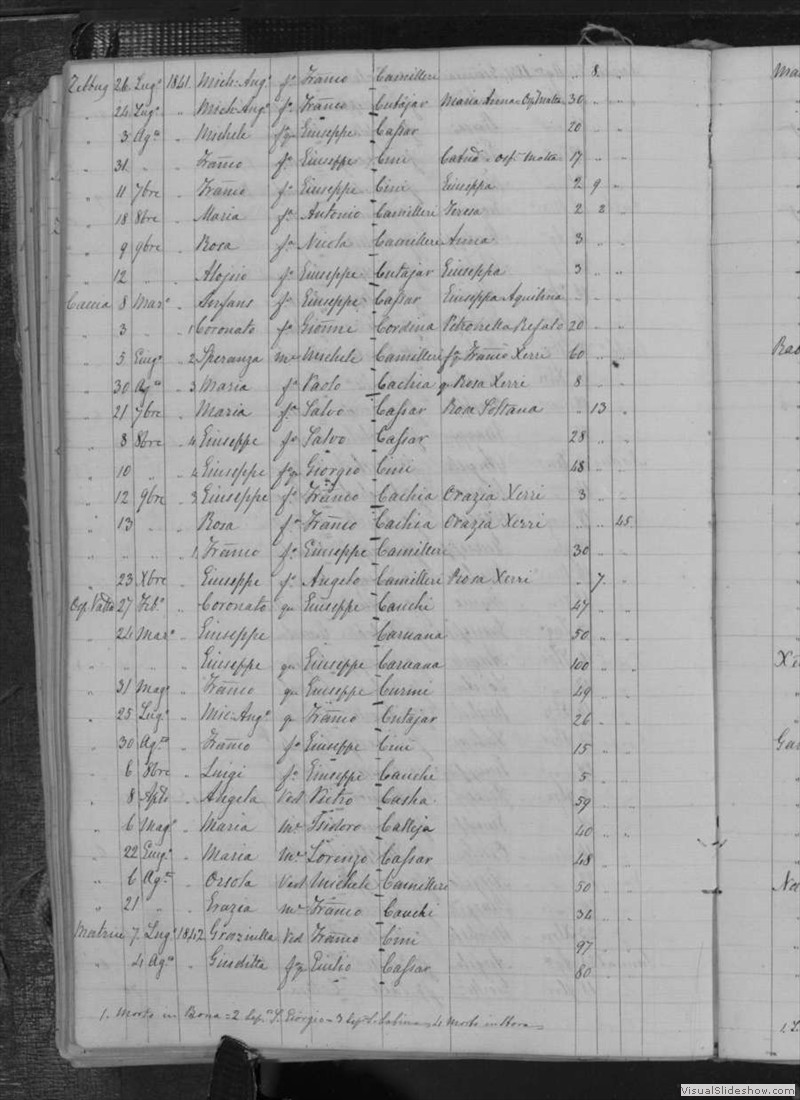 Zebbug 26 Lug.o 1841 Mich: Ang.o f.o Franco Camilleri „ 8 „
„ 24 Lug.o „ Mich: Ang.o f.o Franco Cutajar Maria Anna Osp Malta 30 „ „
„ 3 Ag.o „ Michele Giuseppe Cassar 20
„ 31 „ „ Franco f.o Giuseppe Cini Osp. Malta 17 „ „
„ 11 7bre „ Franco f.o Giuseppe Cini Giuseppa 2 9 „
„ 18 8bre „ Maria f.a Antonio Camilleri Teresa 2 2 „
„ 9 9bre „ Rosa f.a Nicola Camilleri Anna 3 „ „
„ 12 „ „ Aloisio f.o Giuseppe Cutajar Giuseppa 3 „ „
8 Mar.o „ f.o Giuseppe Cassar Giuseppa Aquilina
„ 3 „ „ 1 Coronato f.o Gionne Cordina Petronella Refalo 20 „ „
„ 5 Giug.o „ 2 Speranza m.e Michele Camilleri Franco Xerri 60 „ „
„ 30 Ag.o „ 3 Maria f.a Paolo Cachia q Rosa Xerri 8 „ „
„ 21 7bre „ Maria f.a Salvo Cassar Rosa Soltana „ 13 „
„ 8 8bre „ 4 Giuseppe f.o Salvo Cassar 28 „ „
„ 10 „ „ 4 Giuseppe Giorgio Cini 48 „ „
„ 12 9bre „ 3 Giuseppe f.o Franco Cachia Grazia Xerri 3 „ „
„ 13 „ Rosa f.a Franco Cachia Grazia Xerri „ „ 45
„ „ „ 1 Franco f.o Giuseppe Camilleri 30 „ „
„ 23 Xbre „ Giuseppe f.o Angelo Camilleri Rosa Xerri „ 7 „
27 Feb.o „ Coronato qm Giuseppe Cauchi 47 „ „
„ 24 Mar.o „ Giuseppe Caruana 50 „ „
„ „ „ Giuseppe qm Giuseppe Caruana 100 „ „
„ 31 Mag.o „ Franco qm Giuseppe Curmi 49 „ „
„ 25 Lug.o „ Mic: Ang.o q Franco Cutajar 26 „ „
„ 30 Ag.o „ Franco f.o Giuseppe Cini 15 „ „
„ 6 8bre „ Luigi f.o Giuseppe Cauchi 5 „ „
„ 8 „ Angela Ved Pietro Casha 59 „ „
„ 6 Mag.o „ Maria m.e Isidoro Calleja 40 „ „
„ 22 Giug.o „ Maria m.e Lorenzo Cassar 48 „ „
„ 6 Ag.o „ Orsola Ved Michele Camilleri 50 „ „
„ 21 „ „ Grazia m.e Franco Cauchi 34 „ „
7 Lug.o 1842 Ved Franco Cini 97
„ 4 Ag.o „ Giuditta Giulio Cassar 80
1. Morto in Bona = 2 Sep.a S. Giorgio = 3 Sep. S. Sabina = 4 Morto in
Ma
Rab
X
Ga
No
VisualSlideshow.com